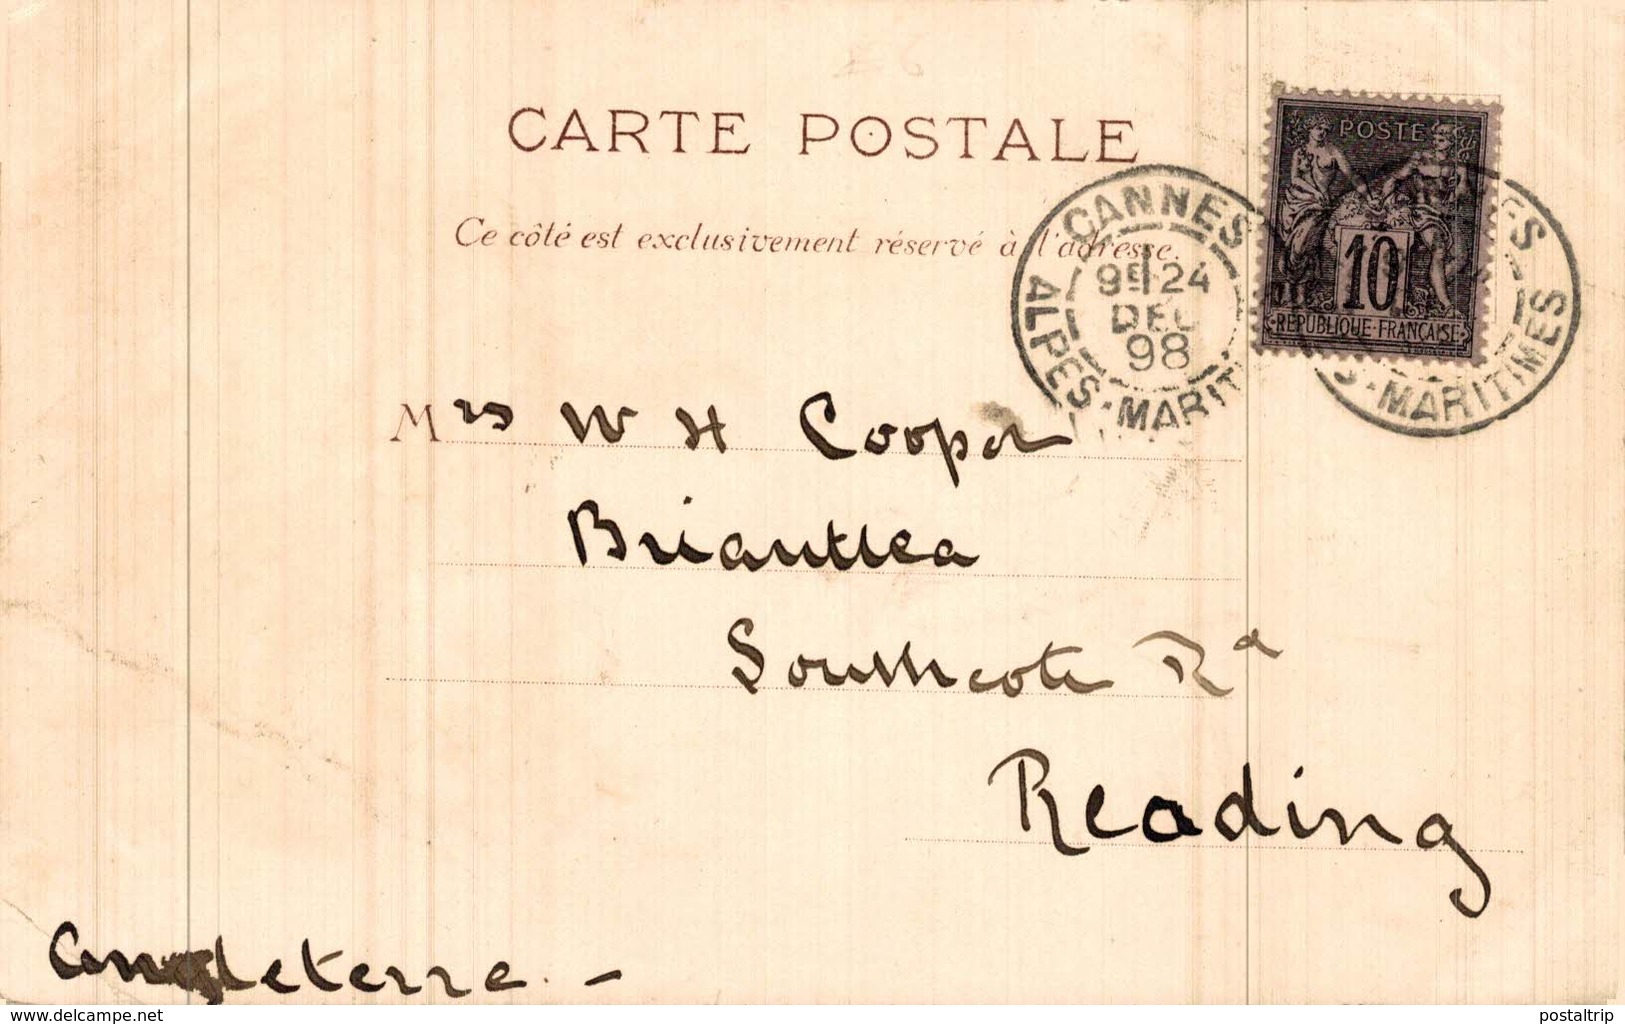 CARTE POSTALE
Ce côté est exclusivement réservé à l'adresse.
POSTE
10
REPUBLIQUE FRANÇAISE
CANNES
9E 24
DEC
98
ALPES-MARITIMES
Mrs W H Cooper
Briantlea
Southcote Rd
Reading
Angleterre. -
www.delcampe.net
postaltrip